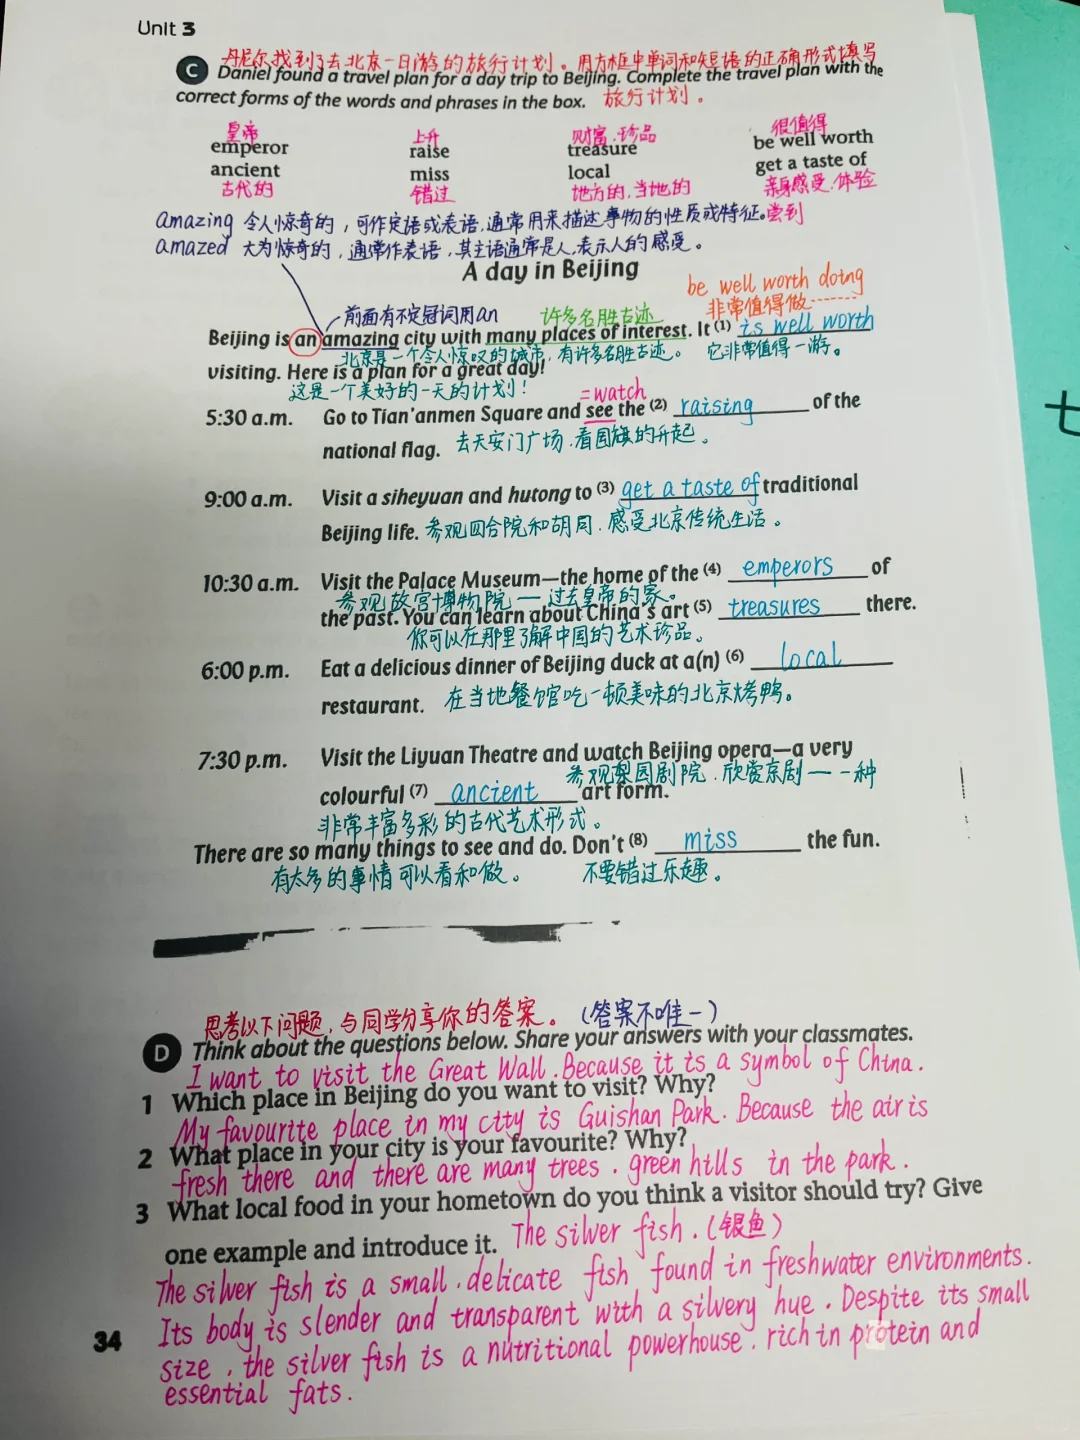 Unit 3
丹尼尔找到了去北京一日游的旅行计划。用方框中单词和短语的正确形式填写
C Daniel found a travel plan for a day trip to Beijing. Complete the travel plan with the
correct forms of the words and phrases in the box. 旅行计划。
皇帝 上升 财富.珍品 很值得
emperor raise treasure be well worth
ancient miss local get a taste of
古代的 错过 地方的,当地的 亲身感受.体验
amazing 令人惊奇的,可作定语或表语.通常用来描述事物的性质或特征。尝到
amazed 大为惊奇的,通常作表语,其主语通常是人,表示人的感受。
A day in Beijing
be well worth doing
前面有不定冠词用an 许多名胜古迹 非常值得做……
Beijing is an amazing city with many places of interest. It (1) is well worth
北京是一个令人惊叹的城市,有许多名胜古迹。 它非常值得一游。
visiting. Here is a plan for a great day!
这是一个美好的一天的计划!
=watch
5:30 a.m. Go to Tian'anmen Square and see the (2) raising of the
national flag. 去天安门广场.看国旗的升起。
9:00 a.m. Visit a siheyuan and hutong to (3) get a taste of traditional
Beijing life. 参观四合院和胡同.感受北京传统生活。
10:30 a.m. Visit the Palace Museum—the home of the (4) emperors of
参观故宫博物院—过去皇帝的家。
the past. You can learn about China's art (5) treasures there.
你可以在那里了解中国的艺术珍品。
6:00 p.m. Eat a delicious dinner of Beijing duck at a(n) (6) local
restaurant. 在当地餐馆吃一顿美味的北京烤鸭。
7:30 p.m. Visit the Liyuan Theatre and watch Beijing opera—a very
参观梨园剧院.欣赏京剧——一种
colourful (7) ancient art form.
非常丰富多彩的古代艺术形式。
There are so many things to see and do. Don't (8) miss the fun.
有太多的事情可以看和做。 不要错过乐趣。
思考以下问题,与同学分享你的答案。(答案不唯一)
D Think about the questions below. Share your answers with your classmates.
I want to visit the Great Wall. Because it is a symbol of China.
1 Which place in Beijing do you want to visit? Why?
My favourite place in my city is Guishan Park. Because the air is
2 What place in your city is your favourite? Why?
fresh there and there are many trees. green hills in the park.
3 What local food in your hometown do you think a visitor should try? Give
one example and introduce it. The silver fish. (银鱼)
The silver fish is a small. delicate fish found in freshwater environments.
Its body is slender and transparent with a silvery hue. Despite its small
34
size, the silver fish is a nutritional powerhouse. rich in protein and
essential fats.
七